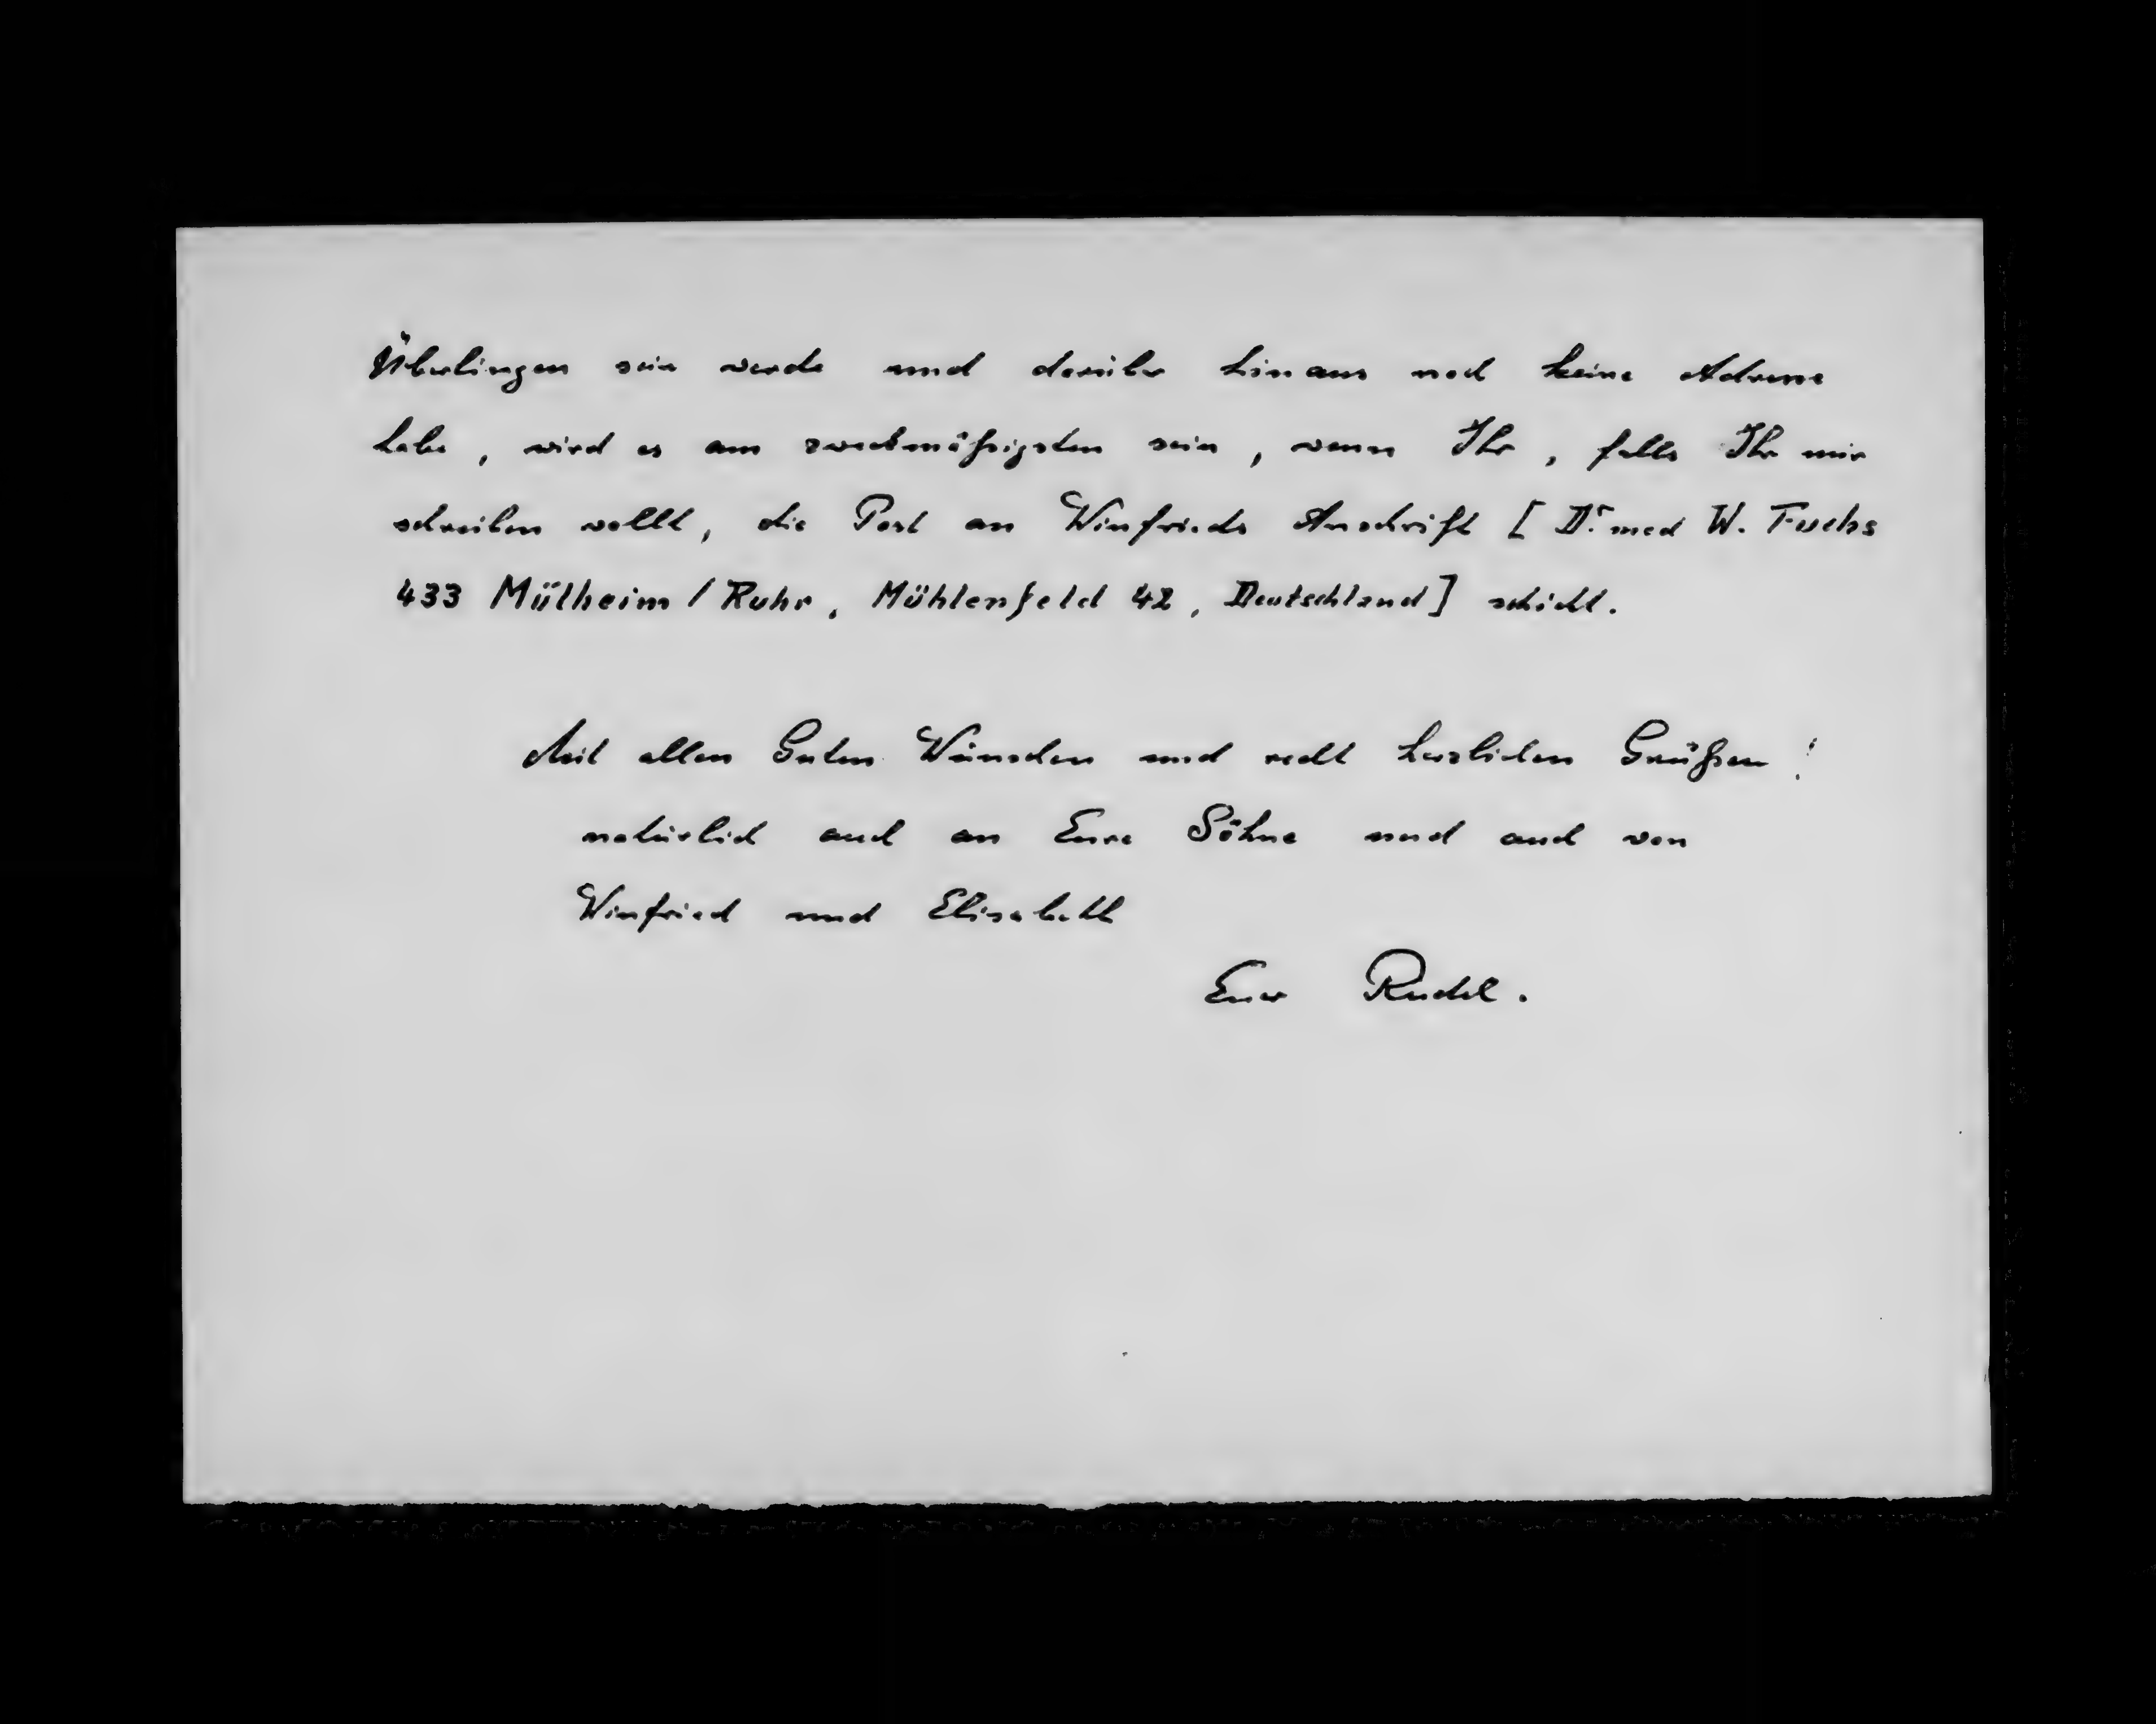 Überlingen sein werde und darüber hinaus noch keine Adresse
habe, wird es am zweckmäßigsten sein, wenn Ihr, falls Ihr mir
schreiben wollt, die Post an Winfrieds Anschrift [Dr. med W. Fuchs
433 Mülheim/Ruhr, Mühlenfeld 42, Deutschland] schickt.
Mit allen Guten Wünschen und recht herzlichen Grüßen!
natürlich auch an Eure Söhne und auch von
Winfried und Elisabeth
Euer Rudel.